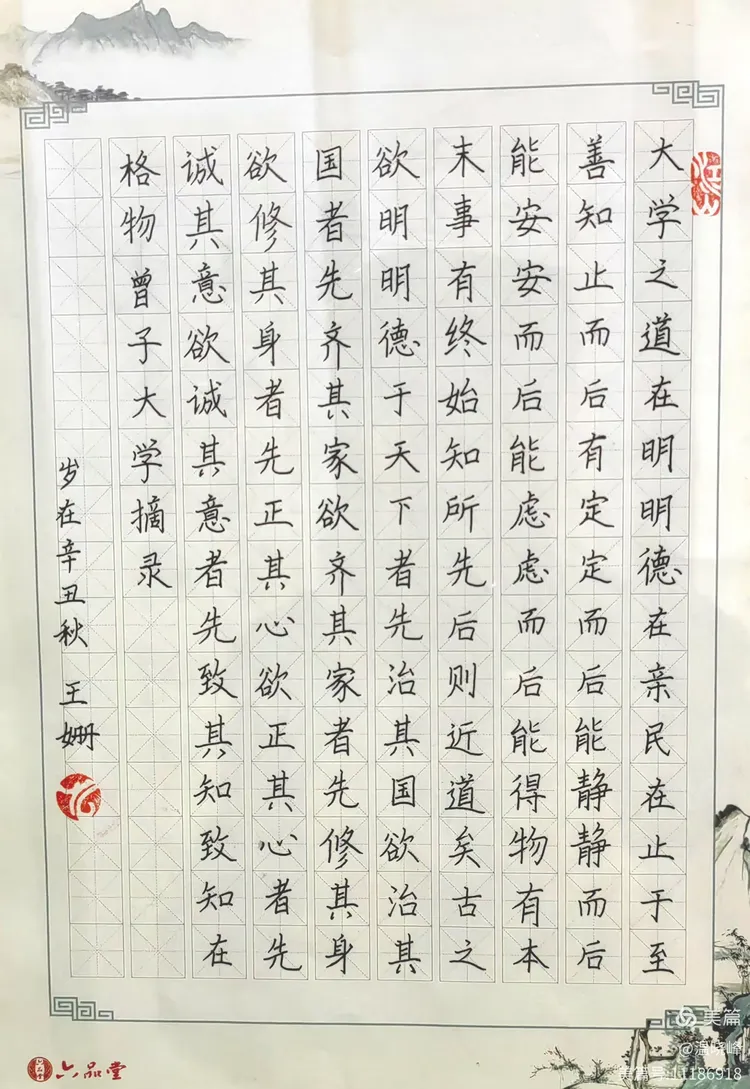 大学之道在明明德在亲民在止于至
善知止而后有定定而后能静静而后
能安安而后能虑虑而后能得物有本
末事有终始知所先后则近道矣古之
欲明明德于天下者先治其国欲治其
国者先齐其家欲齐其家者先修其身
欲修其身者先正其心欲正其心者先
诚其意欲诚其意者先致其知致知在
格物曾子大学摘录
岁在辛丑秋 王姗
六品堂
美篇
@温晓峰
美篇号:11186918